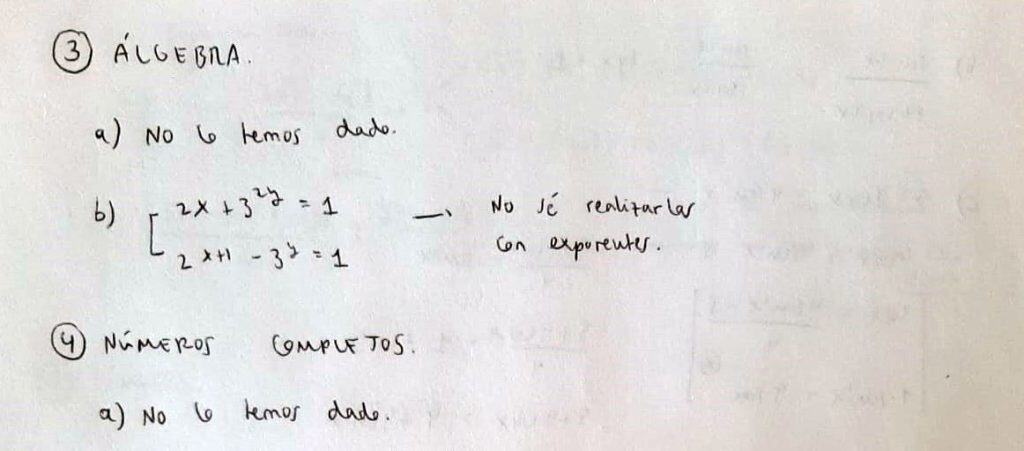 ③ ÁLGEBRA.
a) No lo hemos dado.
b) 2x + 3^2y = 1 → No sé realizarlas
2^x+1 - 3^y = 1 con exponentes.
④ NÚMEROS COMPLEJOS.
a) No lo hemos dado.